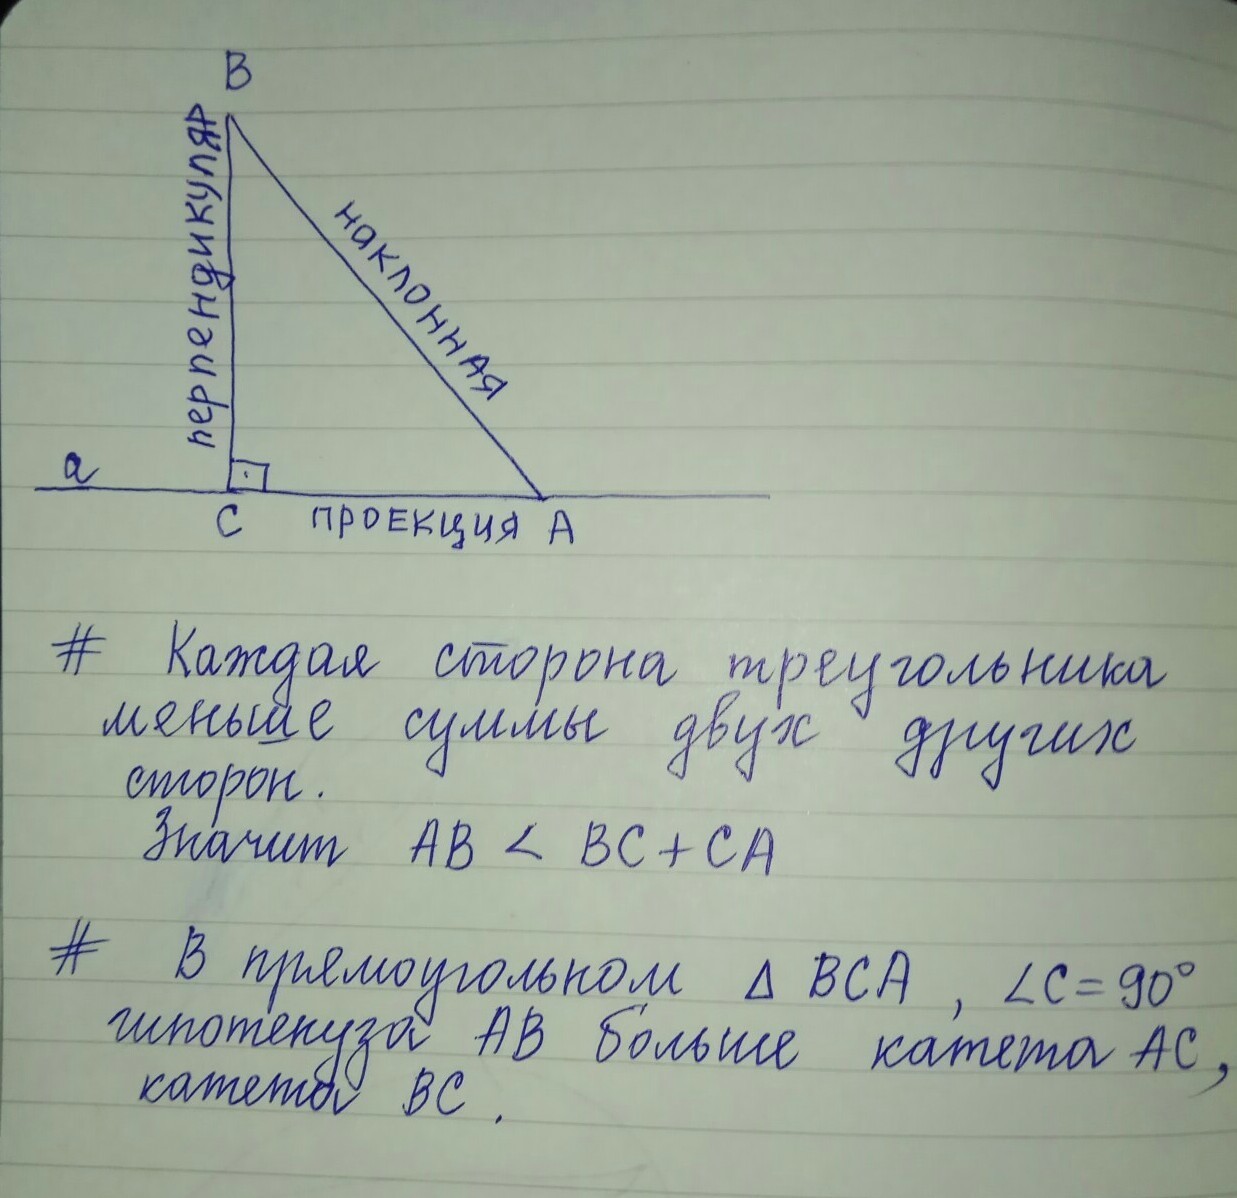 B
перпендикуляр
наклонная
a
C проекция A
# Каждая сторона треугольника
меньше суммы двух других
сторон.
Значит AB < BC + CA
# В прямоугольном Δ BCA, ∠C = 90°
гипотенуза AB больше катета AC,
катета BC.